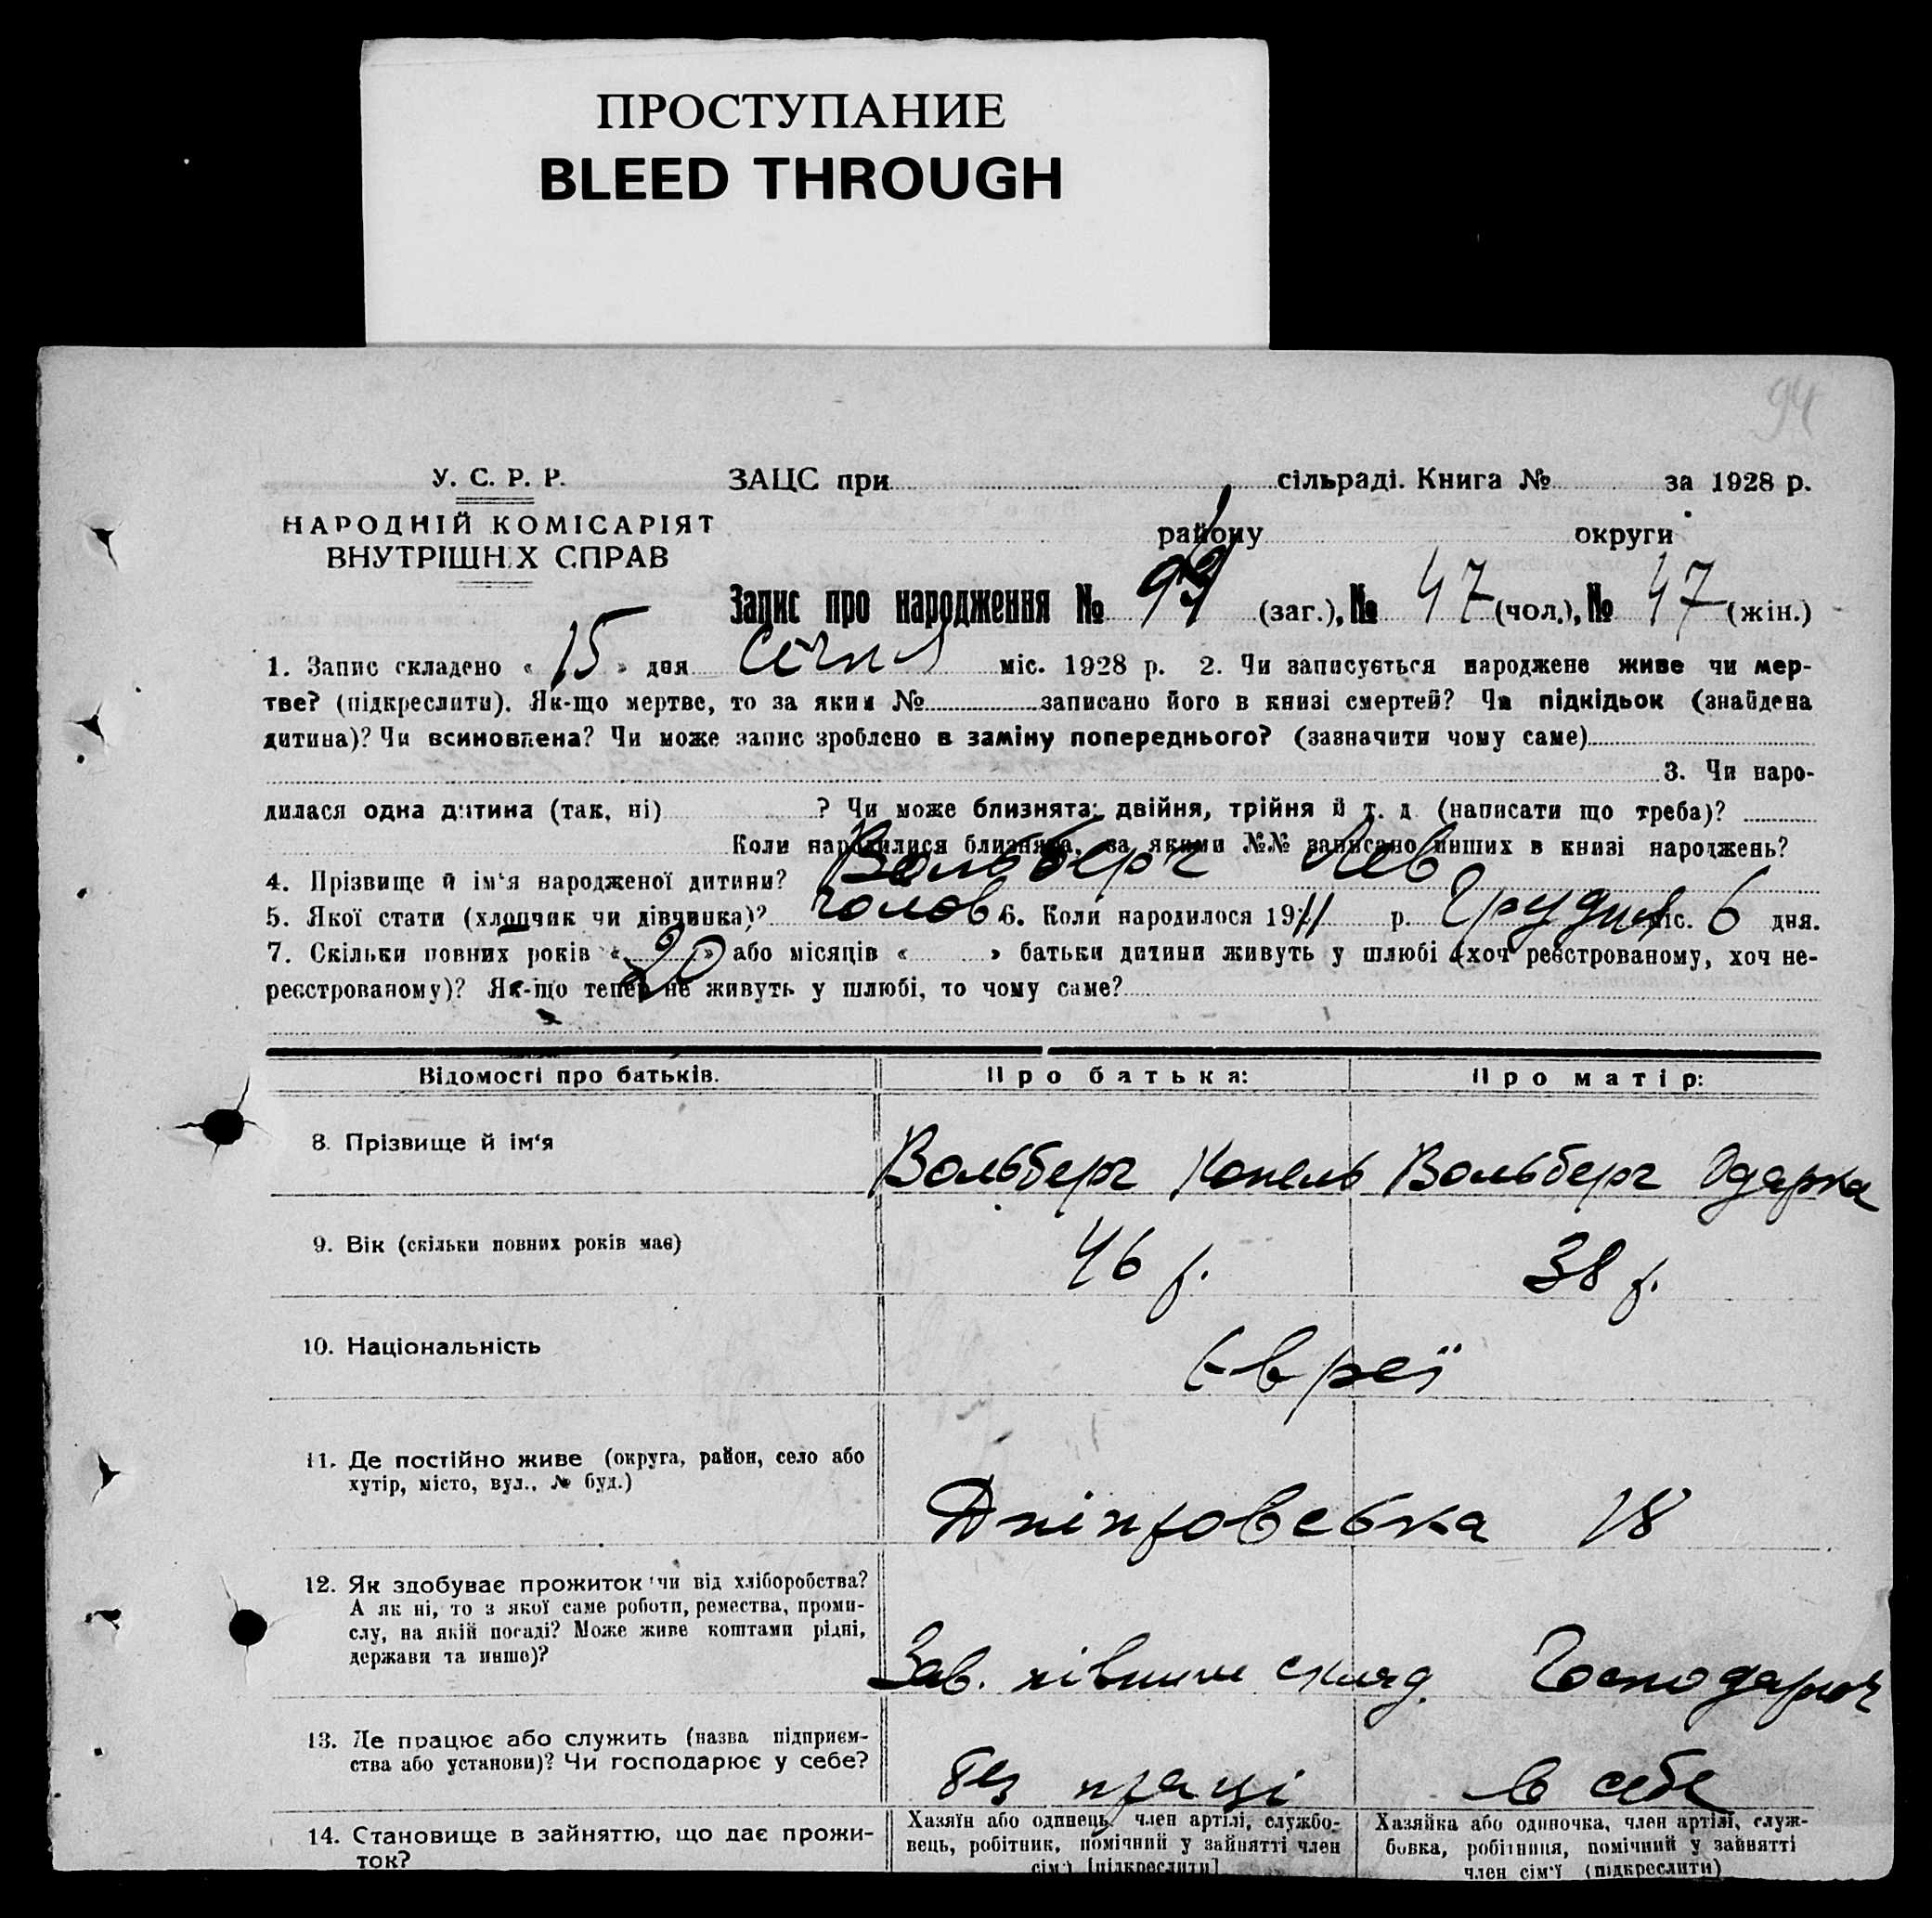 ПРОСТУПАНИЕ
BLEED THROUGH
94
У. С. Р. Р.
НАРОДНІЙ КОМІСАРІЯТ
ВНУТРІШНІХ СПРАВ
ЗАЦС при сільраді. Книга № за 1928 р.
району округи
Запис про народження № (заг.), № 47 (чол.), № 47 (жін.)
1. Запис складено « 15 » дня Січня міс. 1928 р. 2. Чи записується народжене живе чи мер-
тве? (підкреслити). Як-що мертве, то за яким № записано його в книзі смертей? Чи підкідьок (знайдена
дитина)? Чи всиновлена? Чи може запис зроблено в заміну попереднього? (зазначити чому саме)
3. Чи наро-
дилася одна дитина (так, ні) ? Чи може близнята: двійня, трійня й т. д. (написати що треба)?
Коли народилися близнята, за якими №№ записано инших в книзі народжень?
4. Прізвище й ім‘я народженої дитини? Вольберг Лев
5. Якої стати (хлопчик чи дівчинка)? чолов 6. Коли народилося 1911 р. Грудня міс. 6 дня.
7. Скільки повних років « 20 » або місяців « » батьки дитини живуть у шлюбі (хоч реєстрованому, хоч не-
реєстрованому)? Як-що тепер не живуть у шлюбі, то чому саме?
Відомості про батьків. Про батька: Про матір:
8. Прізвище й ім‘я Вольберг Копель Вольберг Одарка
9. Вік (скільки повних років має) 46 р. 38 р.
10. Національність Євреї
11. Де постійно живе (округа, район, село або
хутір, місто, вул., № буд.)
Дніпровська 18
12. Як здобуває прожиток чи від хліборобства?
А як ні, то з якої саме роботи, ремества, проми-
слу, на якій посаді? Може живе коштами рідні,
держави та инше)?
Зав. склад. Господарюч
13. Де працює або служить (назва підприєм-
ства або установи)? Чи господарює у себе?
без праці в себе
14. Становище в зайняттю, що дає прожи-
ток?
Хазяїн або одинець, член артілі, службо-
вець, робітник, помічний у зайнятті член
сім‘ї [підкреслити]
Хазяйка або одиночка, член артілі, служ-
бовка, робітниця, помічний у зайнятті
член сім‘ї (підкреслити)